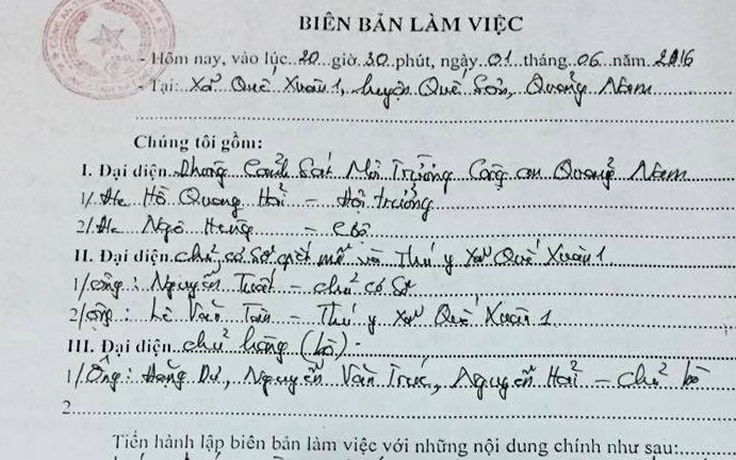 BIÊN BẢN LÀM VIỆC
- Hôm nay, vào lúc 20 giờ 30 phút, ngày 01 tháng 06 năm 2016
- Tại: Xã Quế Xuân 1, huyện Quế Sơn, Quảng Nam
Chúng tôi gồm:
I. Đại diện Phòng Cảnh Sát Môi Trường Công an Quảng Nam
1/ Đ/c Hồ Quang Hải - Đội trưởng
2/ Đ/c Ngô Hùng - Cbộ
II. Đại diện chủ cơ sở giết mổ và Thú y xã Quế Xuân 1
1/ Ông: Nguyễn Tuất - chủ cơ sở
2/ Ông: Lê Văn Tân - Thú y xã Quế Xuân 1
III. Đại diện chủ hàng (bò)
1/ Ông: Đặng Dư, Nguyễn Văn Trúc, Nguyễn Hải - chủ bò
2
Tiến hành lập biên bản làm việc với những nội dung chính như sau: